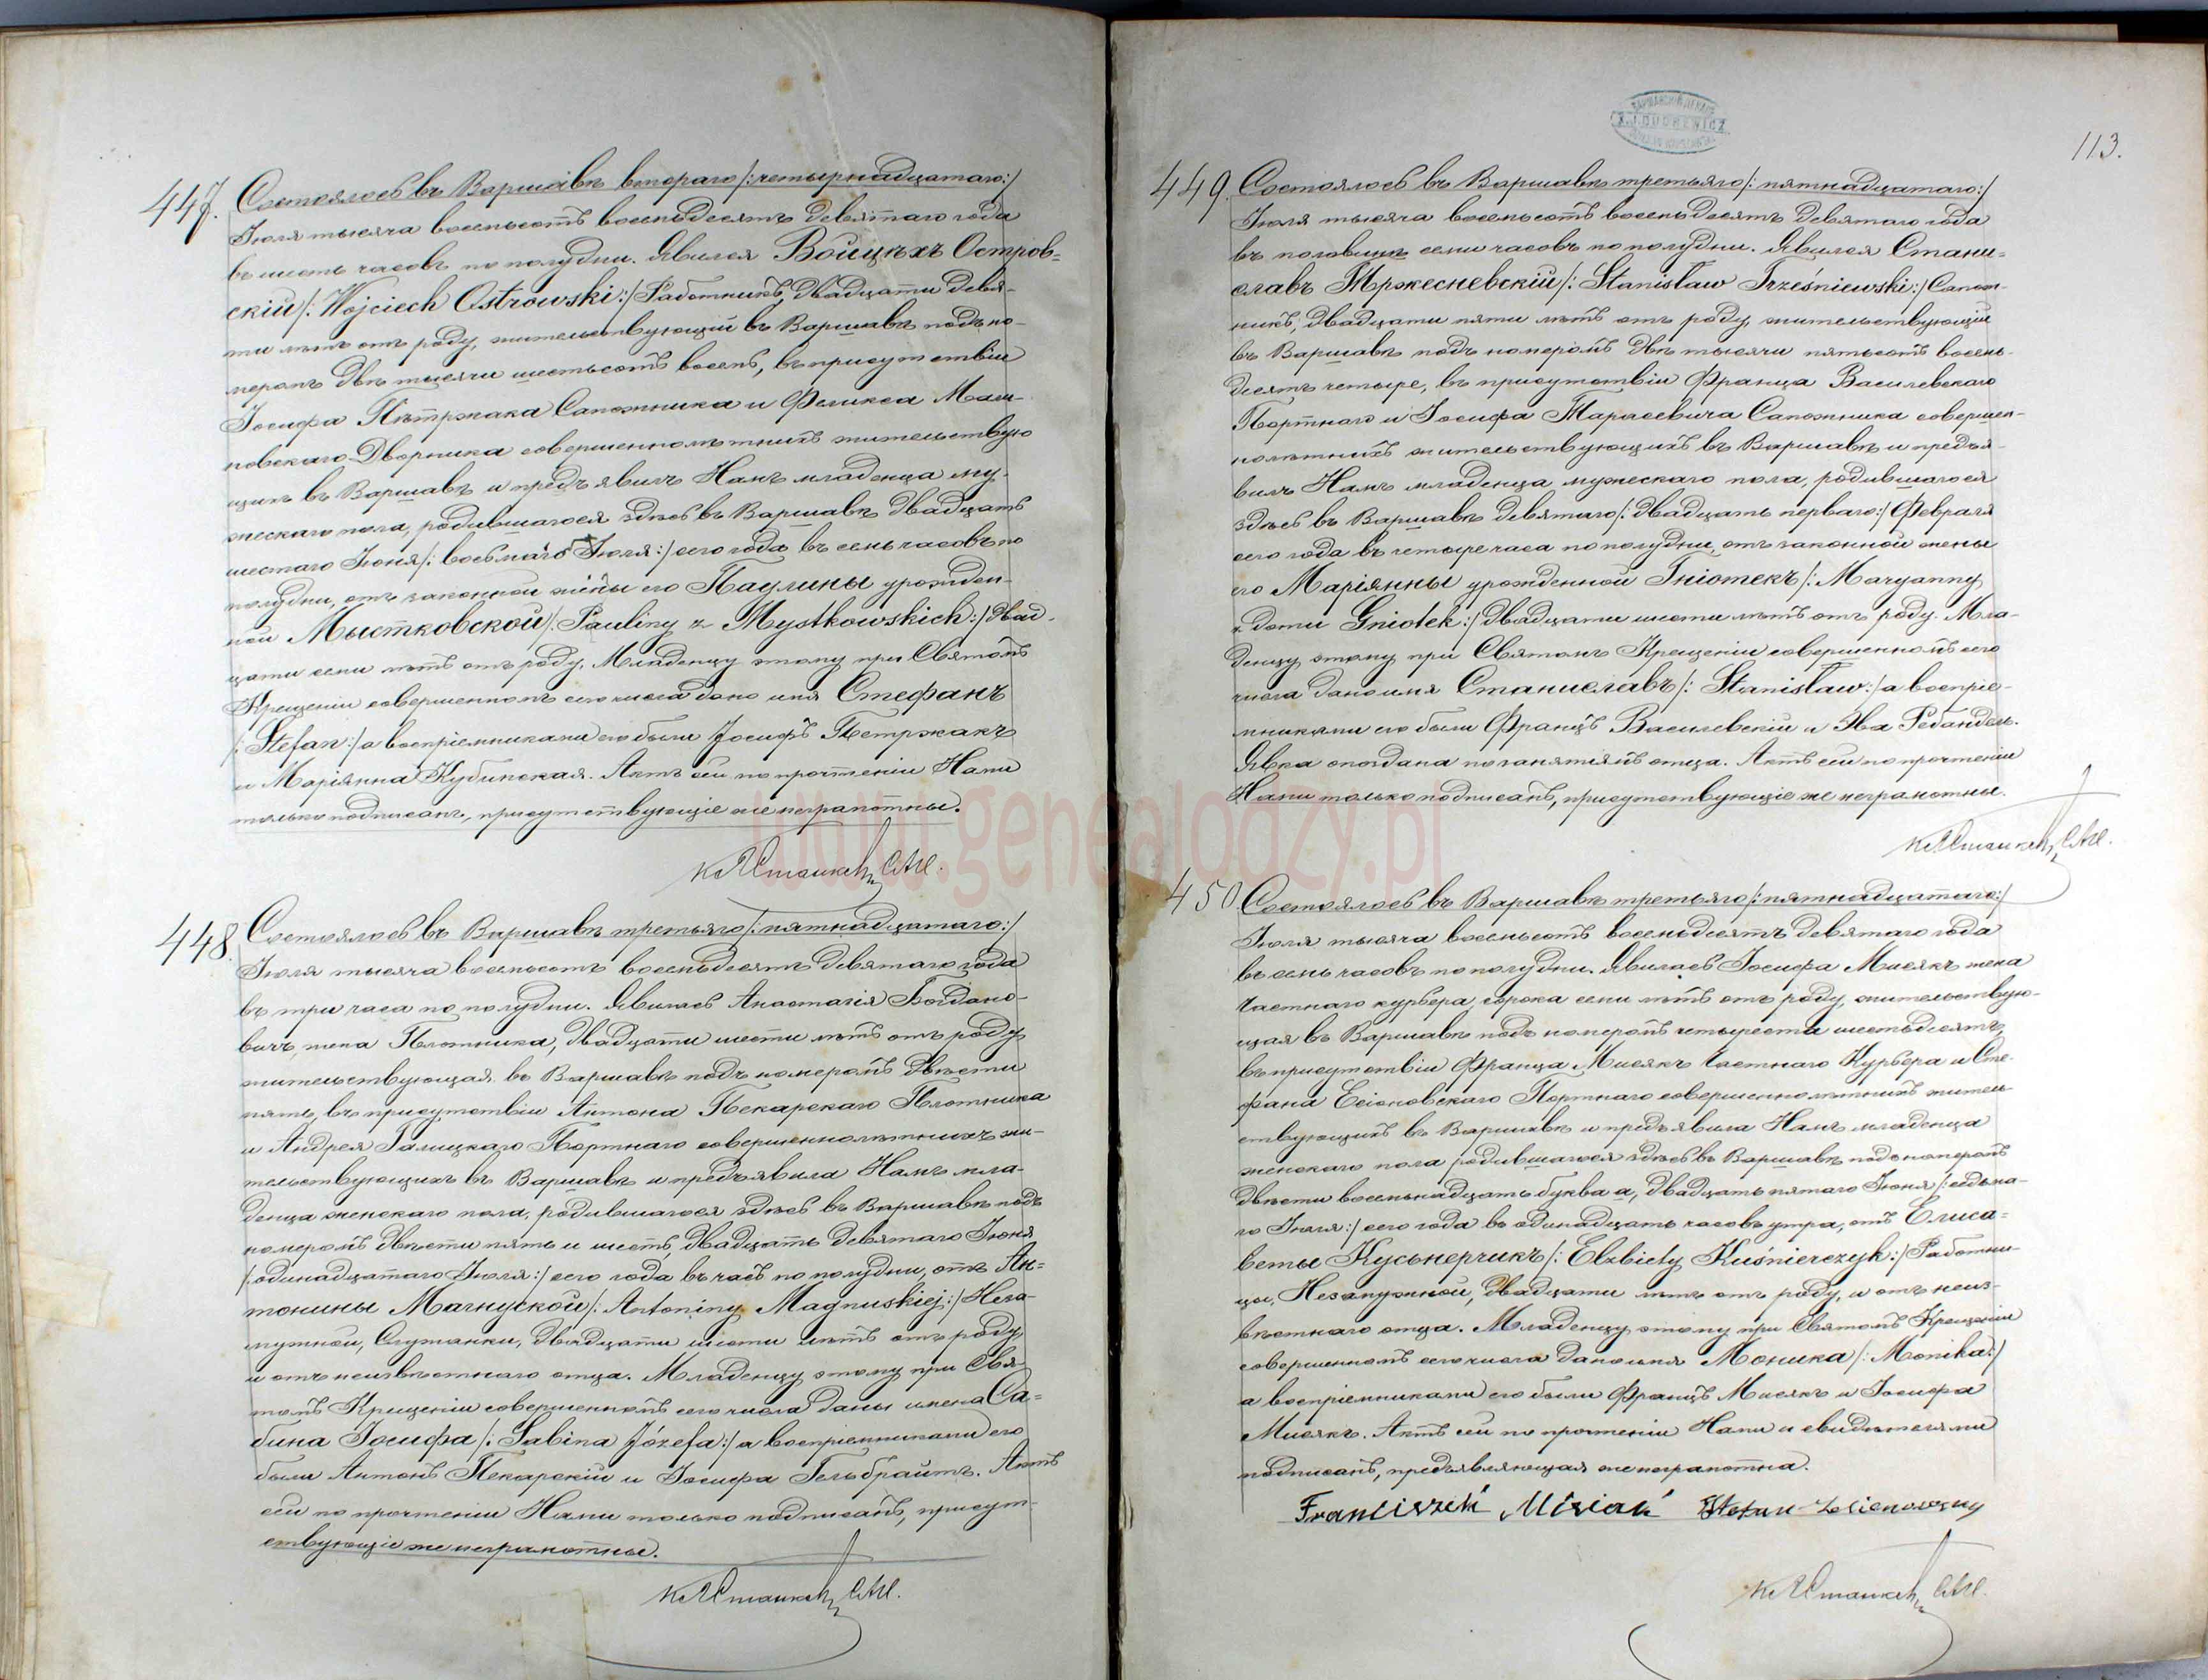 447.
Состоялось въ Варшавѣ втораго /:четырнадцатаго:/
Іюля тысяча восемьсотъ восемьдесятъ девятаго года
въ шесть часовъ по полудни. Явился Войцѣхъ Остров=
скій /: Wojciech Ostrowski :/ Работникъ, двадцати девя-
ти лѣтъ отъ роду, жительствующій въ Варшавѣ подъ но-
меромъ двѣ тысячи шестьсотъ восемь, въ присутствіи
Іосифа Пѣтржака Сапожника и Феликса Маш-
новскаго Дворника совершеннолѣтнихъ жительствую
щихъ въ Варшавѣ и предъявилъ Намъ младенца му-
жескаго пола, родившагося здѣсь въ Варшавѣ двадцать
шестаго Іюня /: восьмаго Іюля :/ сего года въ семь часовъ по
полудни, отъ законной жены его Паулины урожден-
ной Мыстковской /: Pauliny z Mystkowskich :/ двад-
цати семи лѣтъ отъ роду. Младенцу этому при Святомъ
Крещеніи совершенномъ сего числа дано имя Стефанъ
/: Stefan :/ а воспріемниками его были Іосифъ Петржакъ
и Маріянна Кубинская. Актъ сей по прочтеніи Нами
только подписанъ, присутствующіе же неграмотны.
448.
Состоялось въ Варшавѣ третьяго /: пятнадцатаго :/
Іюля тысяча восемьсотъ восемьдесятъ девятаго года
въ три часа по полудни. Явилась Анастасія Богдано-
вичъ, жена Плотника, двадцати шести лѣтъ отъ роду
жительствующая въ Варшавѣ подъ номеромъ двѣсти
пять, въ присутствіи Антона Пекарскаго Плотника
и Андрея Галицкаго Портнаго совершеннолѣтнихъ жи-
тельствующихъ въ Варшавѣ и предъявила Намъ мла-
денца женскаго пола, родившагося здѣсь въ Варшавѣ подъ
номеромъ двѣсти пять и шесть, двадцать девятаго Іюня
/: одинадцатаго Іюля :/ сего года въ часъ по полудни, отъ Ан=
тонины Магнуской /: Antoniny Magnuskiej :/ Неза-
мужной, Служанки, двадцати шести лѣтъ отъ роду,
и отъ неизвѣстнаго отца. Младенцу этому при Свя-
томъ Крещеніи совершенномъ сего числа даны имена Са=
бина Іосифа /: Sabina Józefa :/ а воспріемниками его
были Антонъ Пекарскій и Іосифа Гельбрайтъ. Актъ
сей по прочтеніи Нами только подписанъ, присут-
ствующіе же неграмотны.
113.
449.
Состоялось въ Варшавѣ третьяго /: пятнадцатаго :/
Іюля тысяча восемьсотъ восемьдесятъ девятаго года
въ половинѣ семи часовъ по полудни. Явился Стани-
славъ Тржесневскій /: Stanisław Trześniewski :/ Сапож-
никъ, двадцати пяти лѣтъ отъ роду жительствующій
въ Варшавѣ подъ номеромъ двѣ тысячи пятьсотъ восемь-
десятъ четыре, въ присутствіи Франца Василевскаго
Портнаго и Іосифа Тарасевича Сапожника совершен-
нолѣтнихъ жительствующихъ въ Варшавѣ и предъя-
вилъ Намъ младенца мужескаго пола, родившагося
здѣсь въ Варшавѣ девятаго /: двадцать перваго :/ Февраля
сего года въ четыре часа по полудни, отъ законной жены
его Маріянны урожденной Гніотекъ /: Maryanny
z domu Gniotek :/ двадцати шести лѣтъ отъ роду. Мла-
денцу этому при Святомъ Крещеніи совершенномъ сего
числа дано имя Станиславъ /: Stanisław :/ а воспріе-
мниками его были Францъ Василевскій и Эва Ребандель.
Явка опоздана по занятіямъ отца. Актъ сей по прочтеніи
Нами только подписанъ, присутствующіе же неграмотны.
450
Состоялось въ Варшавѣ третьяго /: пятнадцатаго :/
Іюля тысяча восемьсотъ восемьдесятъ девятаго года
въ семь часовъ по полудни. Явилась Іосифа Мисякъ жена
Частнаго курьера, сорока семи лѣтъ отъ роду, жительствую-
щая въ Варшавѣ подъ номеромъ четыреста шестьдесятъ,
въ присутствіи Франца Мисякъ Частнаго Курьера и Сте-
фана Есіоновскаго Портнаго совершеннолѣтнихъ житель
ствующихъ въ Варшавѣ и предъявила Намъ младенца
женскаго пола родившагося здѣсь въ Варшавѣ подъ номеромъ
двѣсти восемьнадцать буква а, двадцать пятаго Іюня /: седьма-
го Іюля :/ сего года въ одинадцать часовъ утра, отъ Елиса=
беты Кусьнерчикъ /: Elżbiety Kuśnierczyk :/ Работни-
цы, Незамужной, двадцати лѣтъ отъ роду, и отъ неиз-
вѣстнаго отца. Младенцу этому при Святомъ Крещеніи
совершенномъ сего числа дано имя Моника /: Monika :/
а воспріемниками его были Францъ Мисякъ и Іосифа
Мисякъ. Актъ сей по прочтеніи Нами и свидѣтелями
подписанъ, предъявляющая же неграмотна.
Franciszek Misiak Stefan